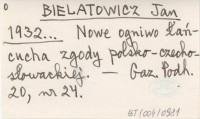 0 BIELATOWICZ Jan
1932... Nowe ogniwo łań-
cucha zgody polsko-czecho-
słowackiej. — Gaz. Podh.
20, nr 24.
BT/004/0981